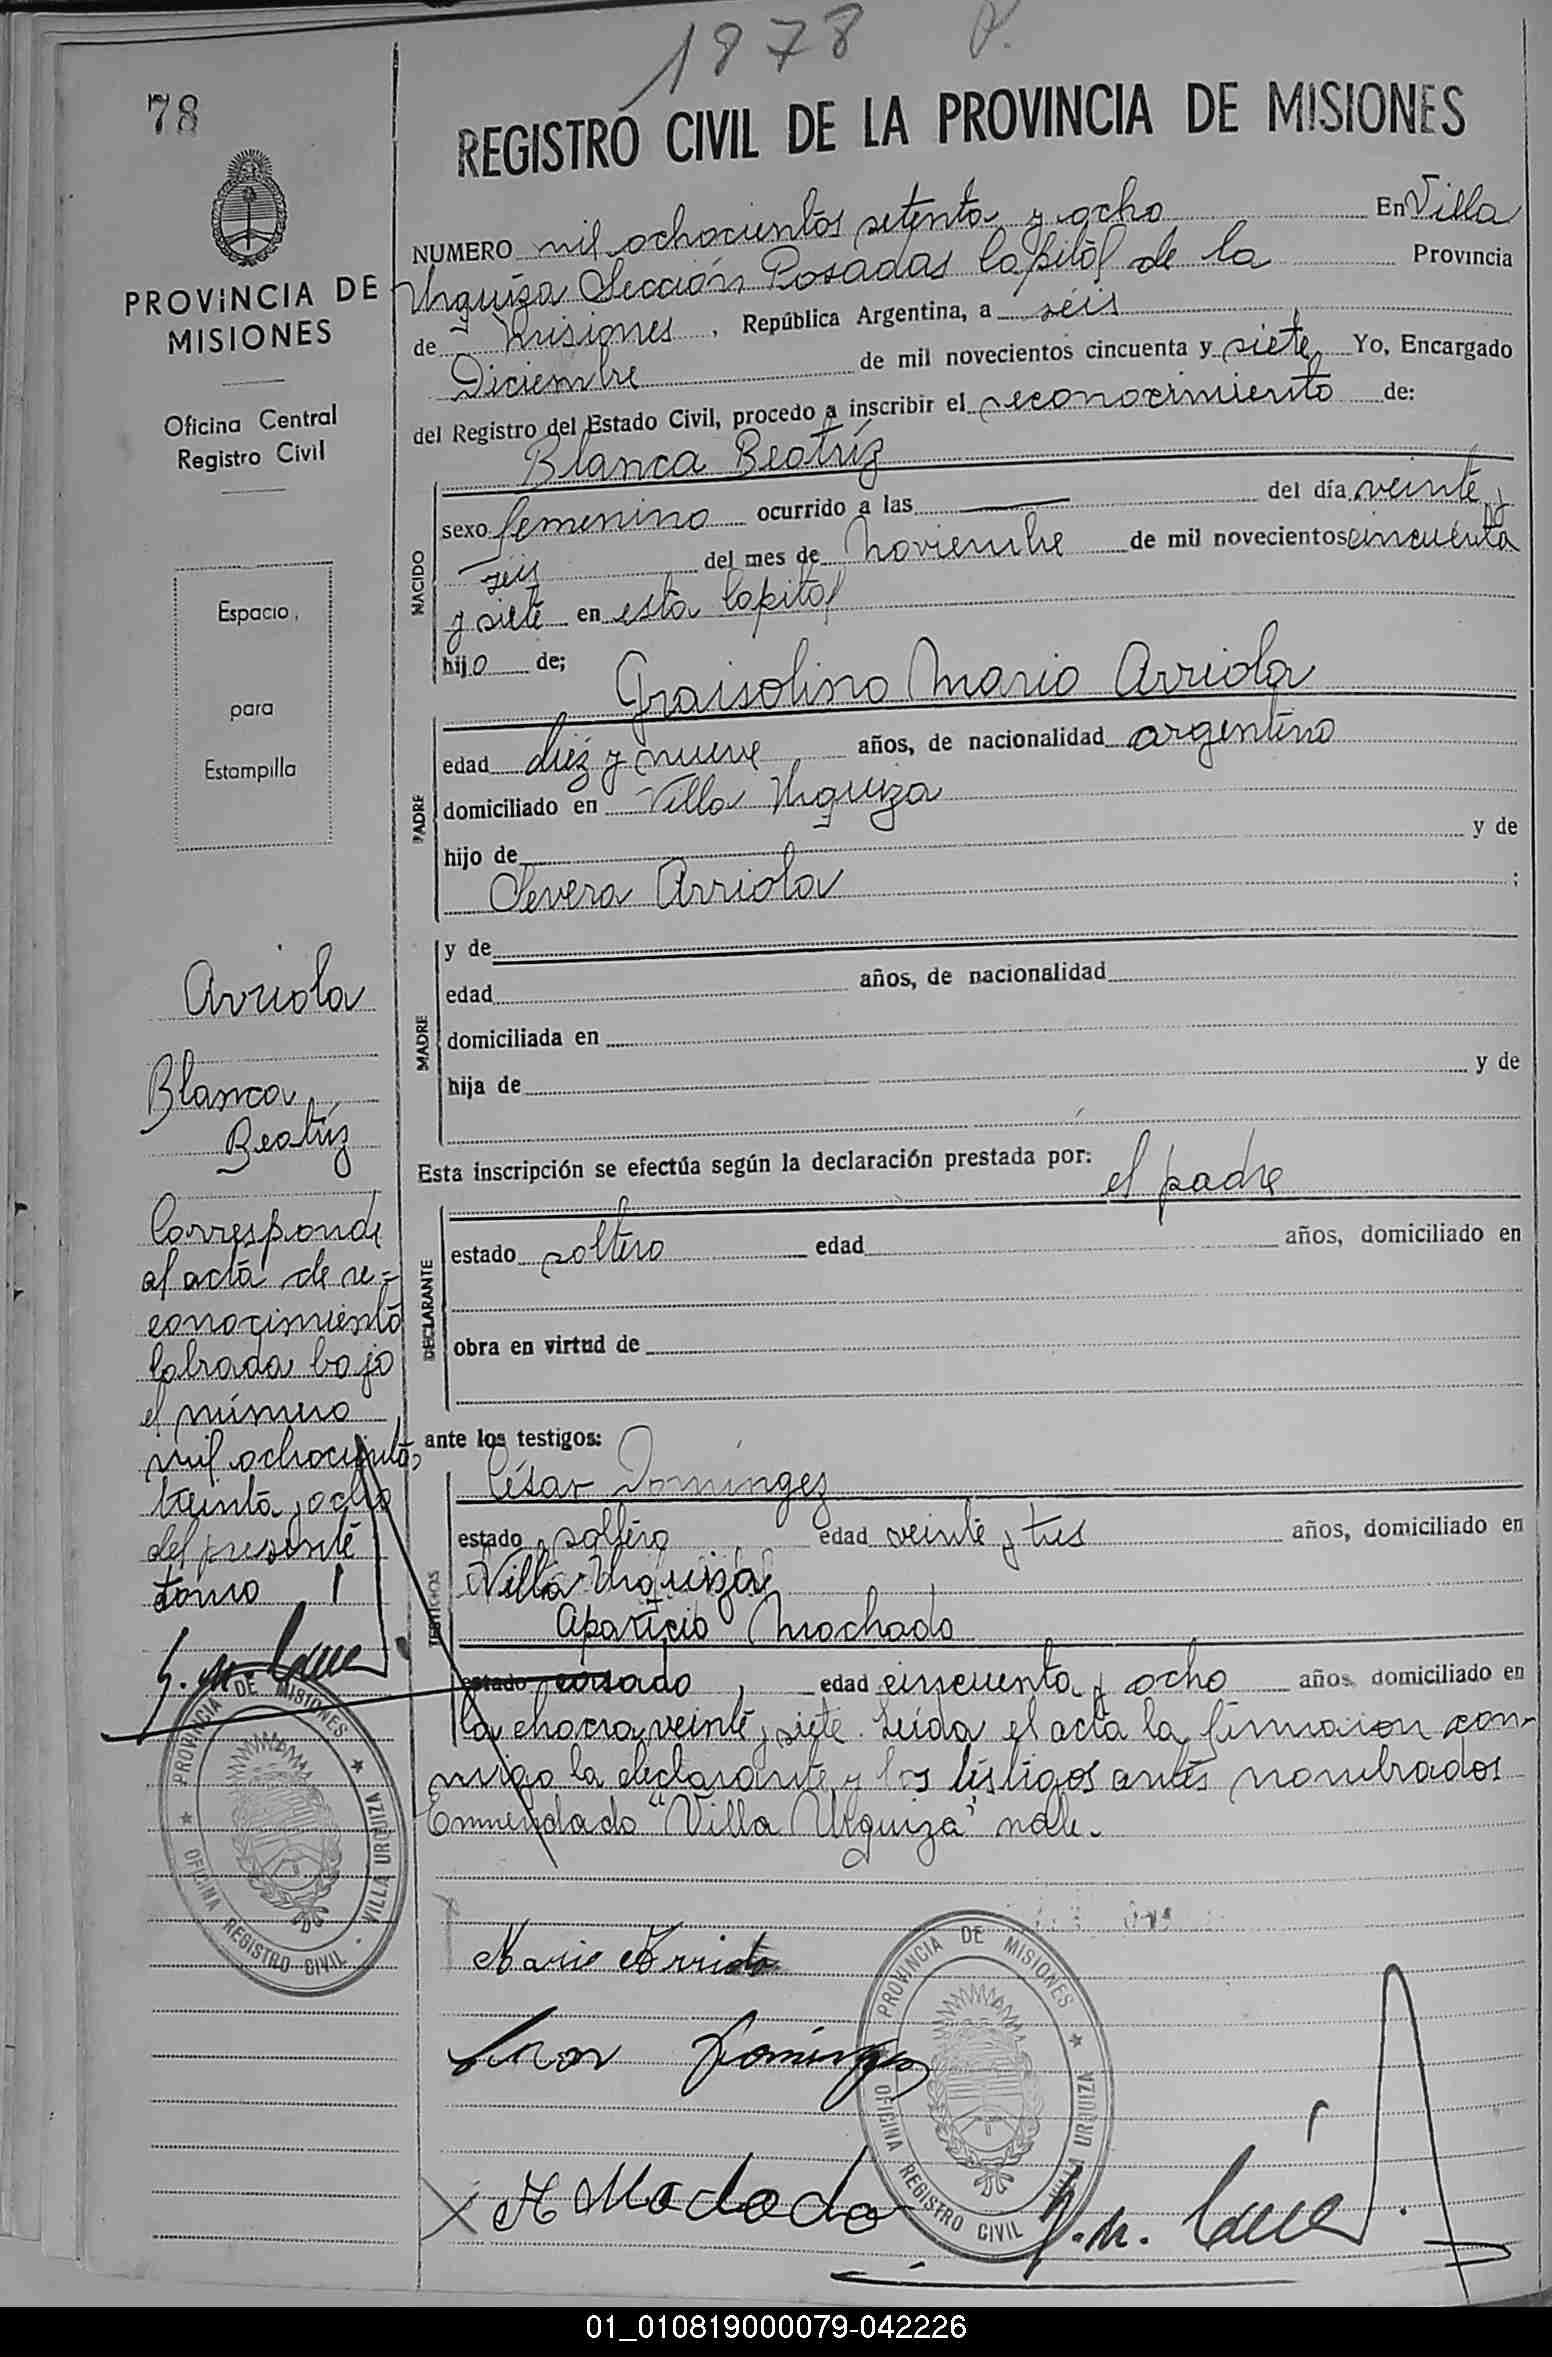 1878
78
REGISTRO CIVIL DE LA PROVINCIA DE MISIONES
PROVINCIA DE
MISIONES
Oficina Central
Registro Civil
Espacio
para
Estampilla
Arriola
Blanca
Beatríz
Corresponde
al acta de re=
conocimiento
labrada bajo
el número
mil ochocientos
treinta y ocho
del presente
tomo I
NUMERO mil ochocientos setenta y ocho En Villa
Urquiza Sección Posadas Capital de la Provincia
de Misiones, República Argentina, a seis
Diciembre de mil novecientos cincuenta y siete Yo, Encargado
del Registro del Estado Civil, procedo a inscribir el reconocimiento de:
Blanca Beatríz
NACIDO
sexo femenino ocurrido a las — del día veinte y
seis del mes de Noviembre de mil novecientos cincuenta
y siete en esta Capital
hijo de;
Graisolino Mario Arriola
PADRE
edad diez y nueve años, de nacionalidad argentino
domiciliado en Villa Urquiza
hijo de y de
Severa Arriola ;
MADRE
y de
edad años, de nacionalidad
domiciliada en
hija de y de
Esta inscripción se efectúa según la declaración prestada por: el padre
DECLARANTE
estado soltero edad años, domiciliado en
obra en virtud de
ante los testigos:
César Domíngez
TESTIGOS
estado soltero edad veinte y tres años, domiciliado en
Villa Urquiza
Aparicio Machado
estado casado, edad cincuenta y ocho años, domiciliado en
la chacra veinte y siete. Leída el acta la firmaron con-
migo la declarante y los testigos antes nombrados
Enmendado "Villa Urquiza" vale.
Mario Arriola
Domínguez
A Machado
PROVINCIA DE MISIONES
OFICINA REGISTRO CIVIL · VILLA URQUIZA
PROVINCIA DE MISIONES
OFICINA REGISTRO CIVIL VILLA URQUIZA
01_010819000079-042226